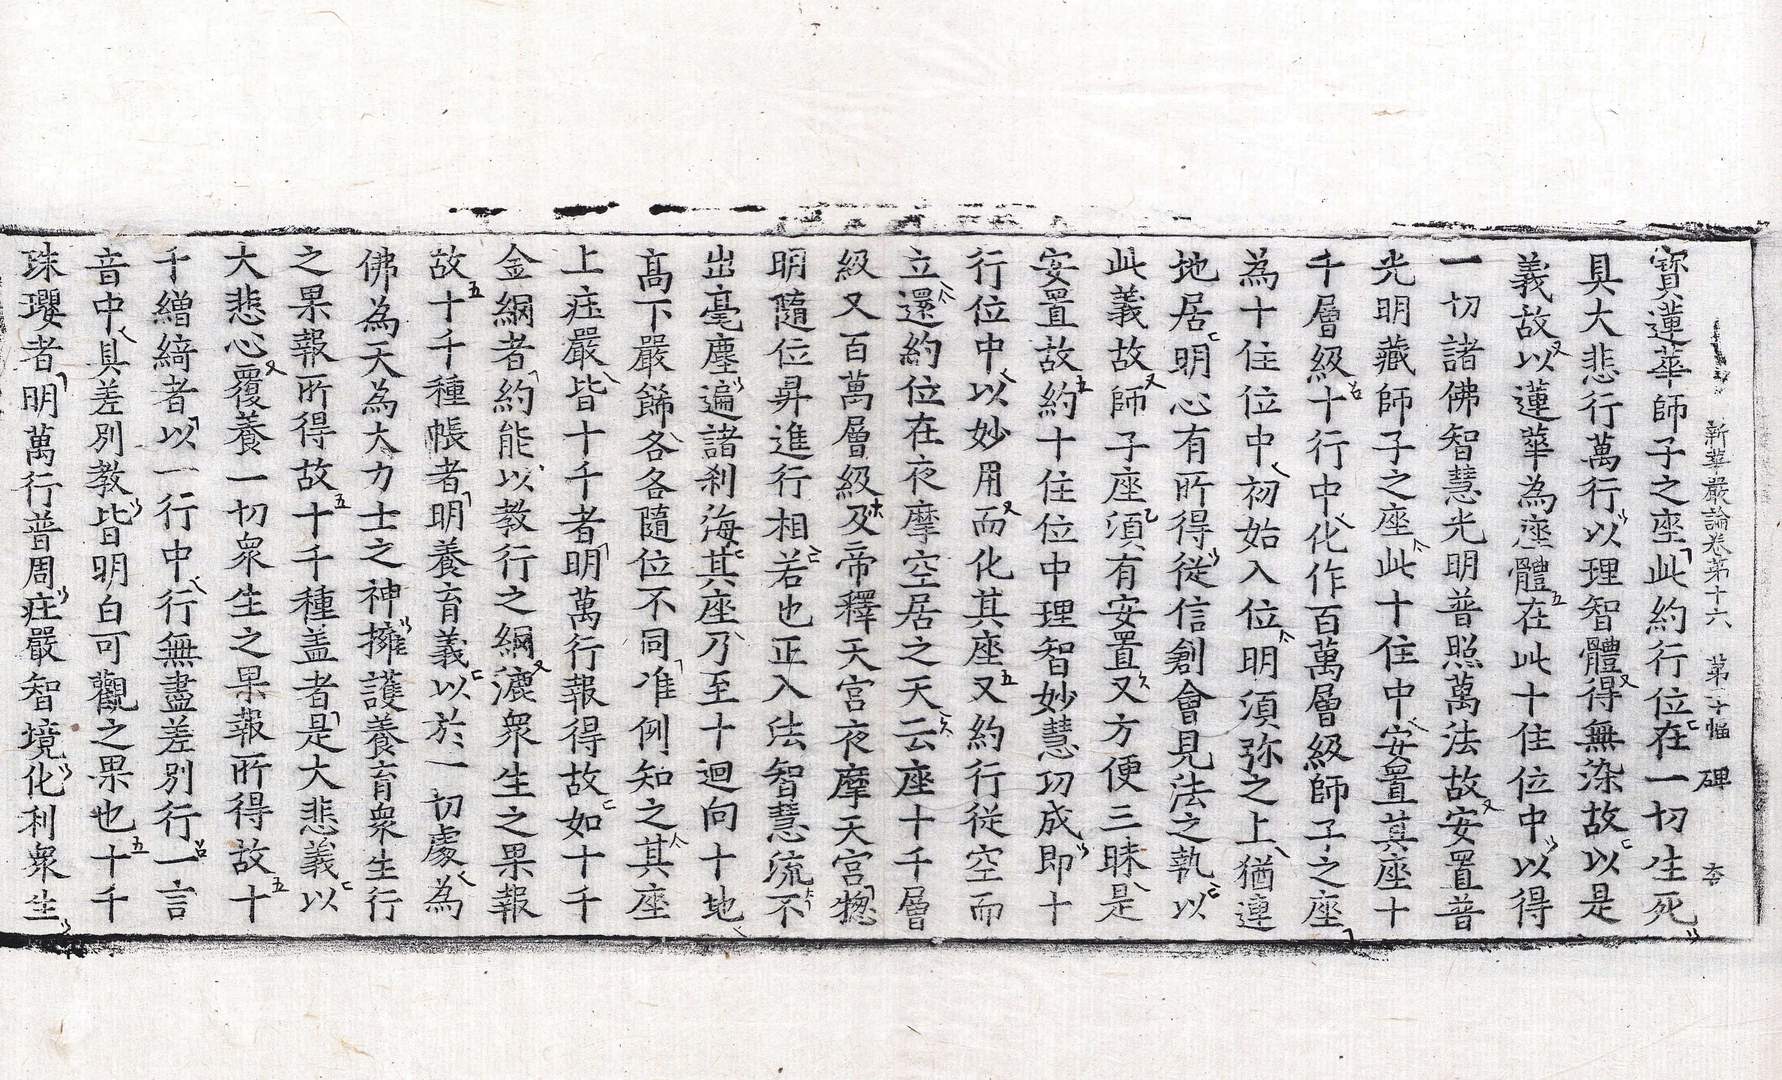 新華嚴論卷第十六　第二十幅　碑
寶蓮華師子之座此約行位在一切生死
具大悲行萬行以理智體得無染故以是
義故以蓮華為座體在此十住位中以得
一切諸佛智慧光明普照萬法故安置普
光明藏師子之座此十住中安置其座十
千層級十行中化作百萬層級師子之座
為十住位中初始入位明須弥之上猶連
地居明心有所得從信創會見法之執以
此義故師子座須有安置又方便三昧是
安置故約十住位中理智妙慧功成即十
行位中以妙用而化其座又約行從空而
立還約位在夜摩空居之天云座十千層
級又百萬層級及帝釋天宮夜摩天宮惣
明隨位昇進行相若也正入法智慧流不
出毫塵遍諸刹海其座乃至十迴向十地
高下嚴餙各各隨位不同准例知之其座
上庄嚴皆十千者明萬行報得故如十千
金網者約能以教行之網漉衆生之果報
故十千種帳者明養育義以於一切處為
佛為天為大力士之神擁護養育衆生行
之果報所得故十千種盖者是大悲義以
大悲心覆養一切衆生之果報所得故十
千繒綺者以一行中行無盡差別行一言
音中具差別教皆明白可觀之果也十千
珠瓔者明萬行普周庄嚴智境化利衆生